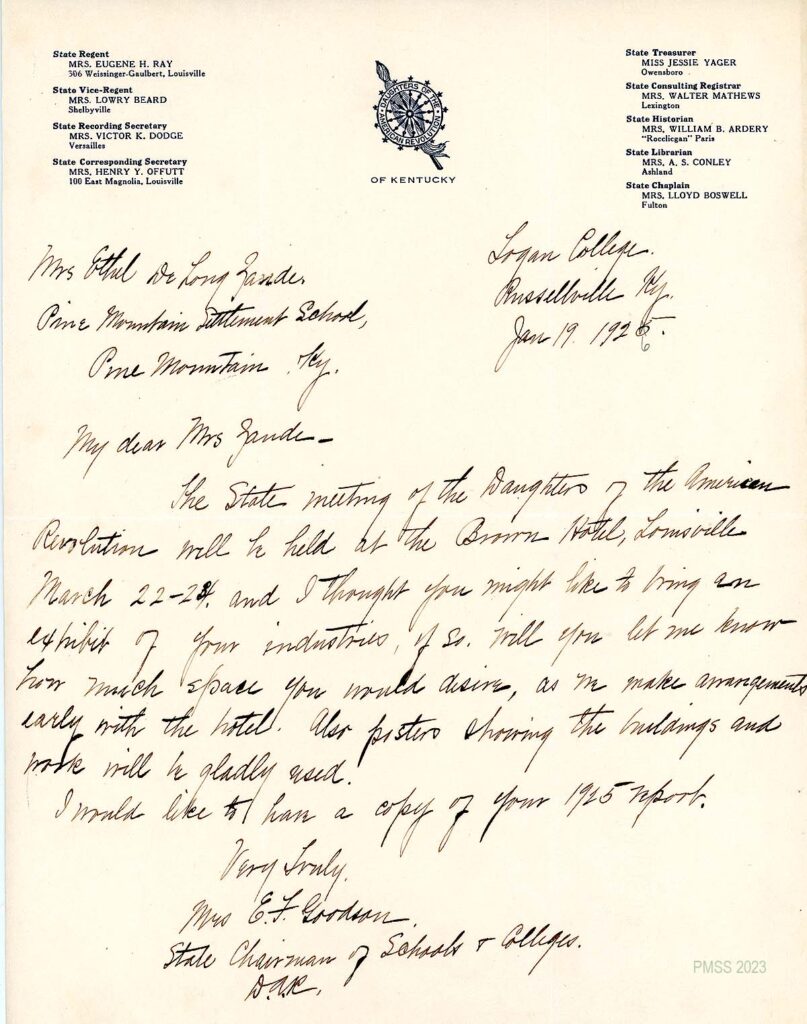 State Regent
MRS. EUGENE H. RAY
306 Weissinger-Gaulbert, Louisville
State Vice-Regent
MRS. LOWRY BEARD
Shelbyville
State Recording Secretary
MRS. VICTOR K. DODGE
Versailles
State Corresponding Secretary
MRS. HENRY Y. OFFUTT
100 East Magnolia, Louisville
DAUGHTERS OF THE
AMERICAN REVOLUTION
OF KENTUCKY
State Treasurer
MISS JESSIE YAGER
Owensboro
State Consulting Registrar
MRS. WALTER MATHEWS
Lexington
State Historian
MRS. WILLIAM B. ARDERY
"Rocclicgan" Paris
State Librarian
MRS. A. S. CONLEY
Ashland
State Chaplain
MRS. LLOYD BOSWELL
Fulton
Logan College.
Russellville Ky.
Jan 19. 192
Mrs Ethel De Long Zande.
Pine Mountain Settlement School,
Pine Mountain Ky.
My dear Mrs Zande –
The State meeting of the Daughters of the American
Revolution will be held at the Brown Hotel, Louisville
March 22- and I thought you might like to bring an
exhibit of your industries, if so. will you let me know
how much space you would desire, as we make arrangements
early with the hotel. Also posters showing the buildings and
work will be gladly used.
I would like to have a copy of your 1925 report.
Very Truly.
Mrs E. F. Goodson.
State Chairman of Schools & Colleges.
D.A.R.
PMSS 2023